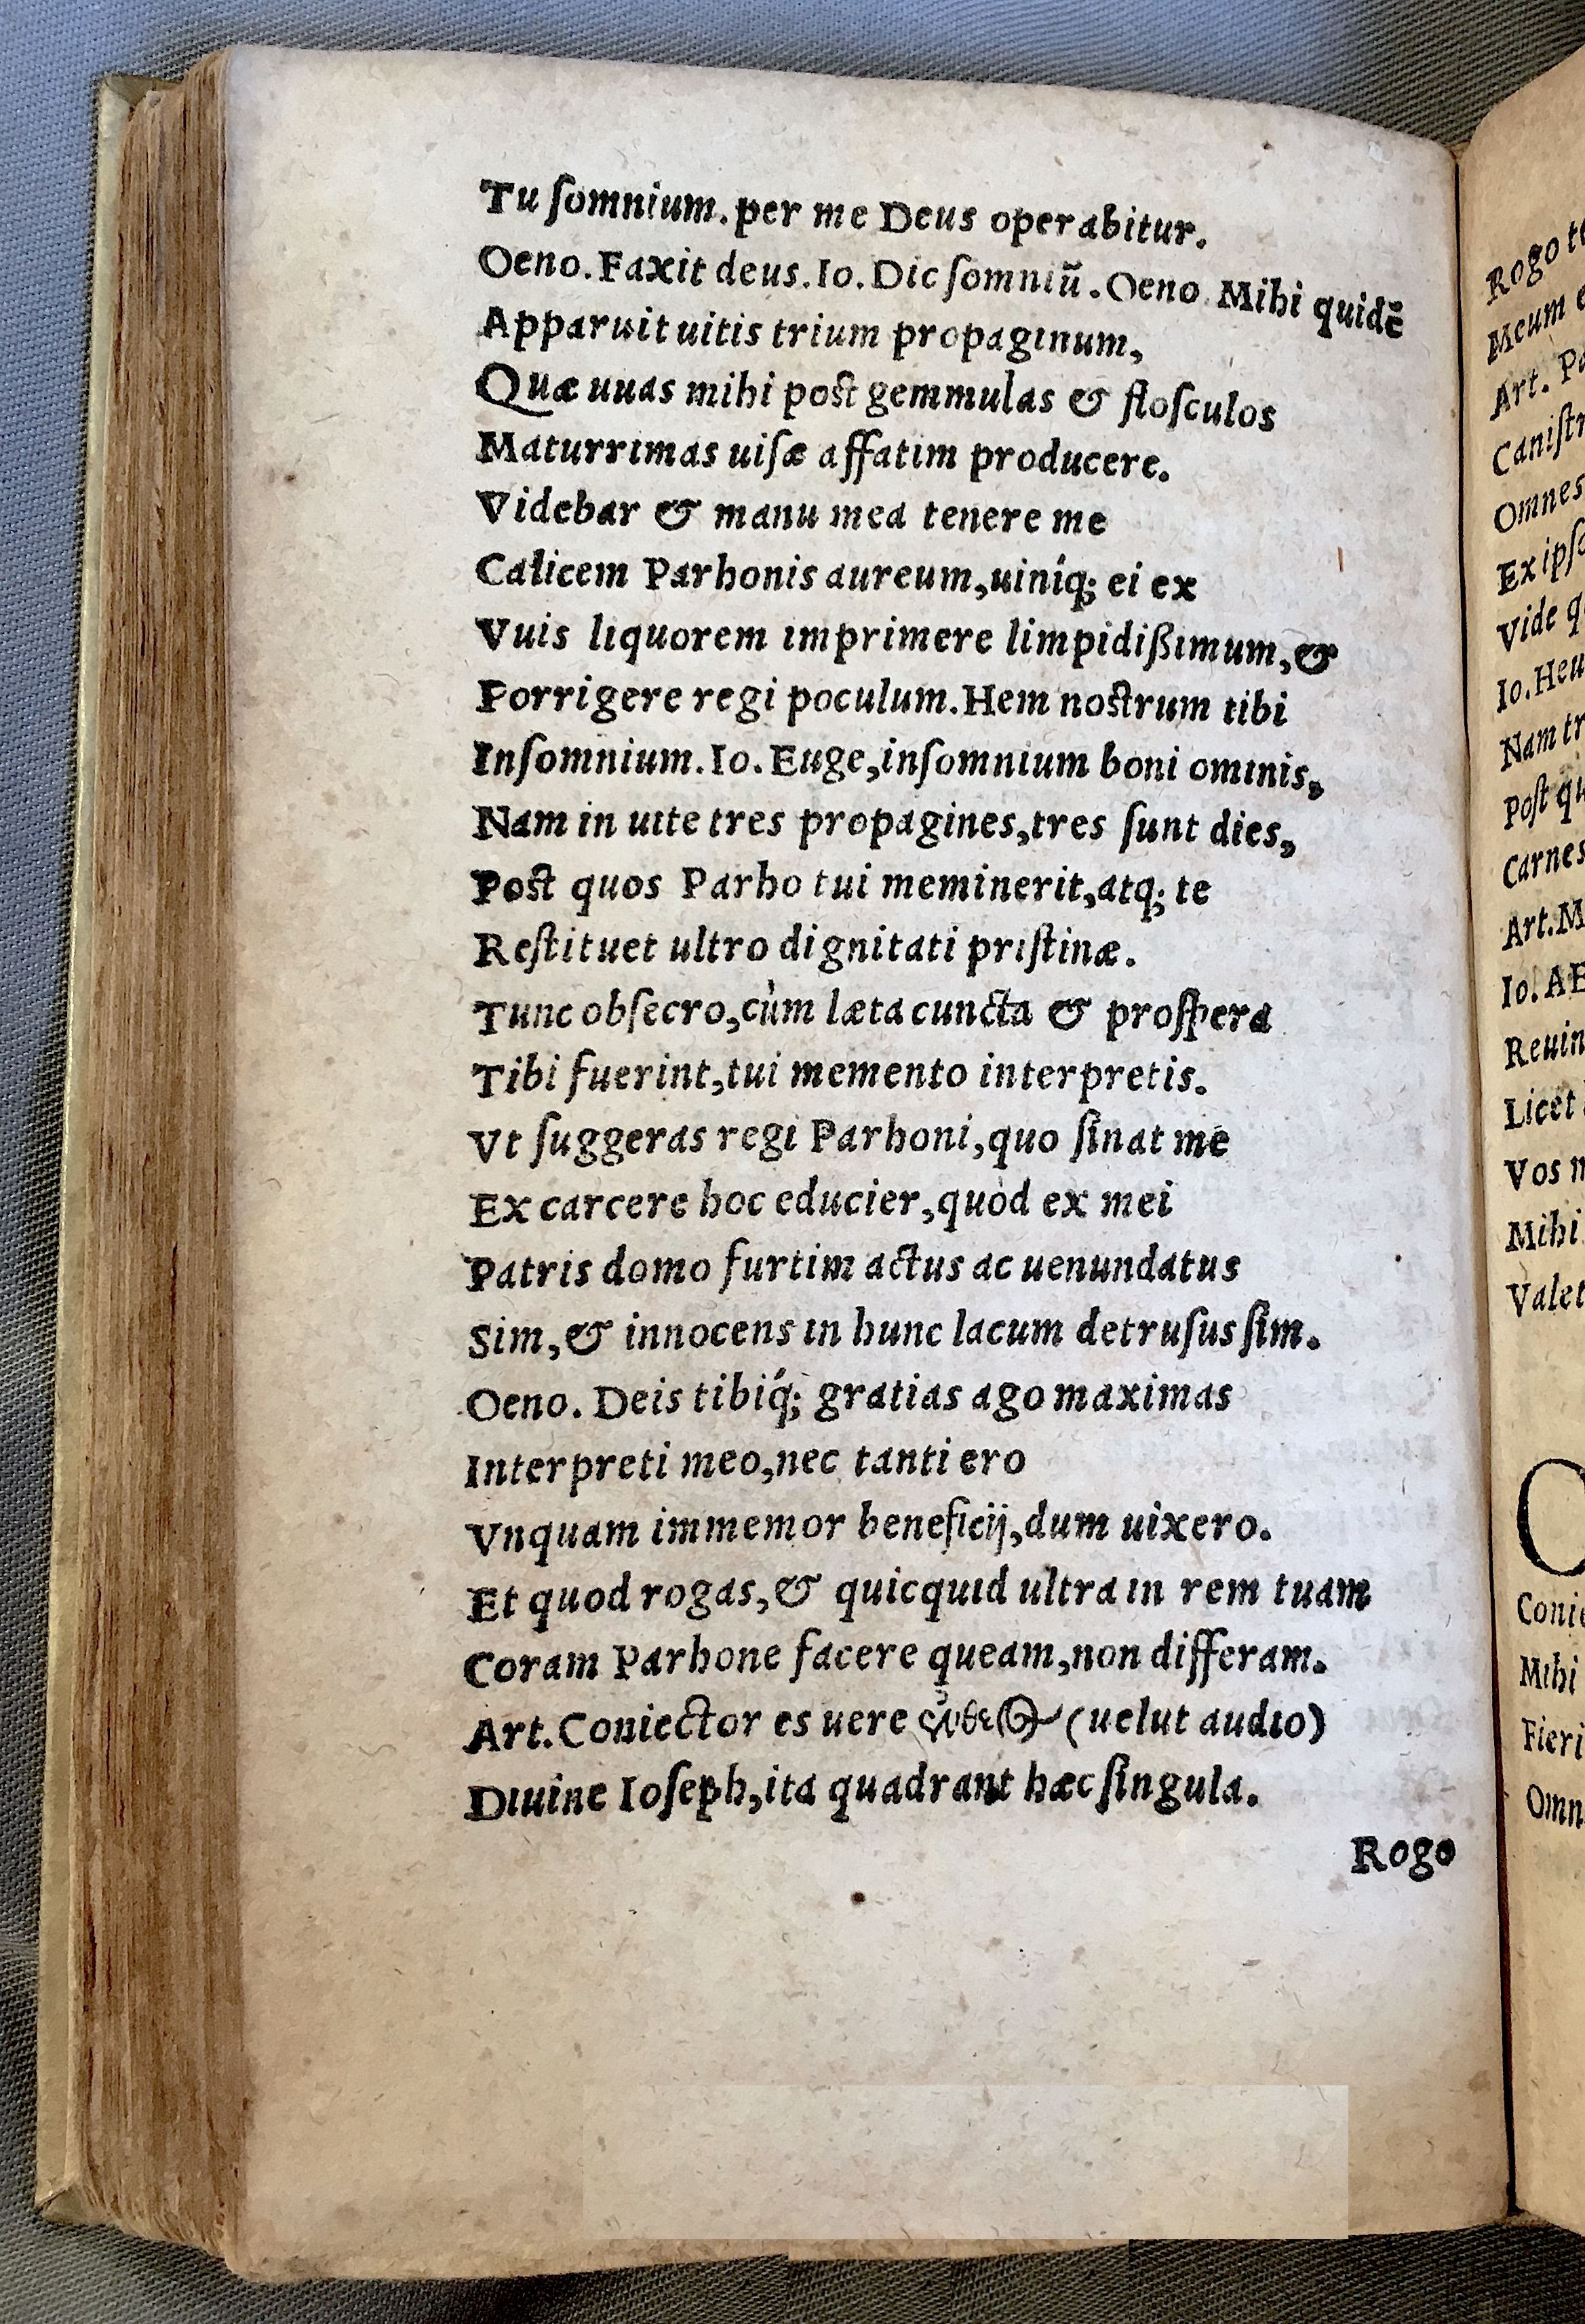 Tu ſomnium. per me Deus operabitur.
Oeno. Faxit deus. Io. Dic ſomniũ. Oeno. Mihi quidẽ
Apparuit uitis trium propaginum,
Quæ uuas mihi poſt gemmulas & floſculos
Maturrimas uiſæ affatim producere.
Videbar & manu mea tenere me
Calicem Parhonis aureum, uiniq́; ei ex
Vuis liquorem imprimere limpidißimum, &
Porrigere regi poculum. Hem noſtrum tibi
Inſomnium. Io. Euge, inſomnium boni ominis,
Nam in uite tres propagines, tres ſunt dies,
Poſt quos Parho tui meminerit, atq; te
Reſtituet ultro dignitati priſtinæ.
Tunc obſecro, cùm læta cuncta & proſpera
Tibi fuerint, tui memento interpretis.
Vt ſuggeras regi Parhoni, quo ſinat me
Ex carcere hoc educier, quòd ex mei
Patris domo furtim actus ac uenundatus
Sim, & innocens in hunc lacum detruſus ſim.
Oeno. Deis tibiq́; gratias ago maximas
Interpreti meo, nec tanti ero
Vnquam immemor beneficij, dum uixero.
Et quod rogas, & quicquid ultra in rem tuam
Coram Parhone facere queam, non differam.
Art. Coniector es uere (uelut audio)
Diuine Ioſeph, ita quadrant hæc ſingula.
Rogo
Rogo
Meum
Art.
Omnes
Ex
Vide
Io. Heu
Nam
Poſt
Carnes
Art.
Io.
Licet
Vos
Mihi
Mihi
Fieri